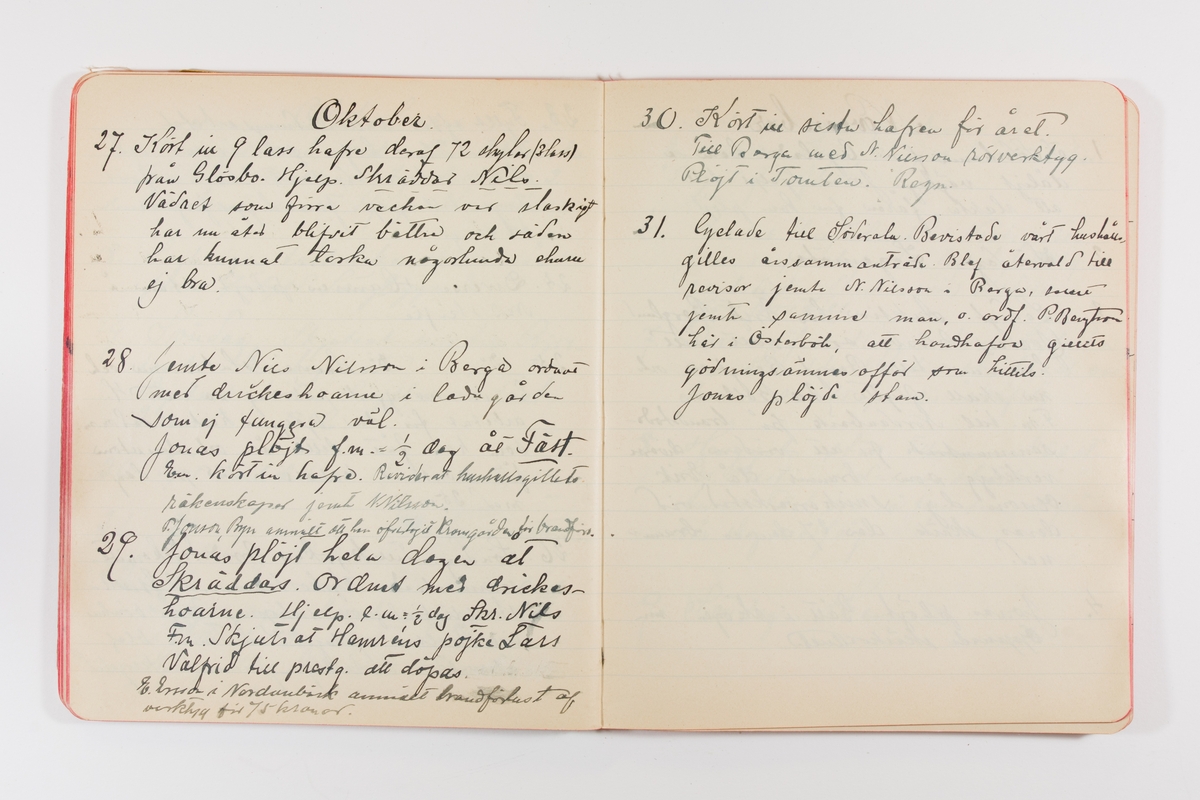 Oktober.
27. Kört in 9 lass hafre deraf 72 skylar (3 lass)
från Glösbo. Hjelp. Skräddar Nils.
Vädret som förra veckan var slaskigt
har nu åter blifvit bättre och säden
har kunnat torka någorlunda ehuru
ej bra.
28. Jemte Nils Nilsson i Berga ordnat
med drickeshoarne i ladugården
som ej fungera väl.
Jonas plöjt f.m. = 1/2 dag åt Fäst.
Em. kört in hafre. Reviderat hushållsgillets
räkenskaper jemte N. Nilsson.
P. Jonson, Byn anmält att han afstågit Kromgården för brandförs.
29. Jonas plöjt hela dagen åt
Skräddars. Ordnat med drickes-
hoarne. Hjelp. e.m. = 1/2 dag Skr. Nils
Fm. Skjutsat Hamréns pojke Lars
Valfrid till prestg. att döpas.
E. Ersson i Nordanbäck anmält brandförlust af
verktyg för 75 kronor.
30. Kört in sista hafren för året.
Till Berga med N. Nilsson rörverktyg.
Plöjt i Tomten. Regn.
31. Cyclade till Söderala. Bevistade vårt hushålls-
gilles årssammanträde. Blef återvald till
revisor jemte N. Nilsson i Berga, samt
jemte samme man, o. ordf. P. Bengtson
här i Österböle, att handhafva gillets
gödningsämnesaffär som hittils.
Jonas plöjde stam.